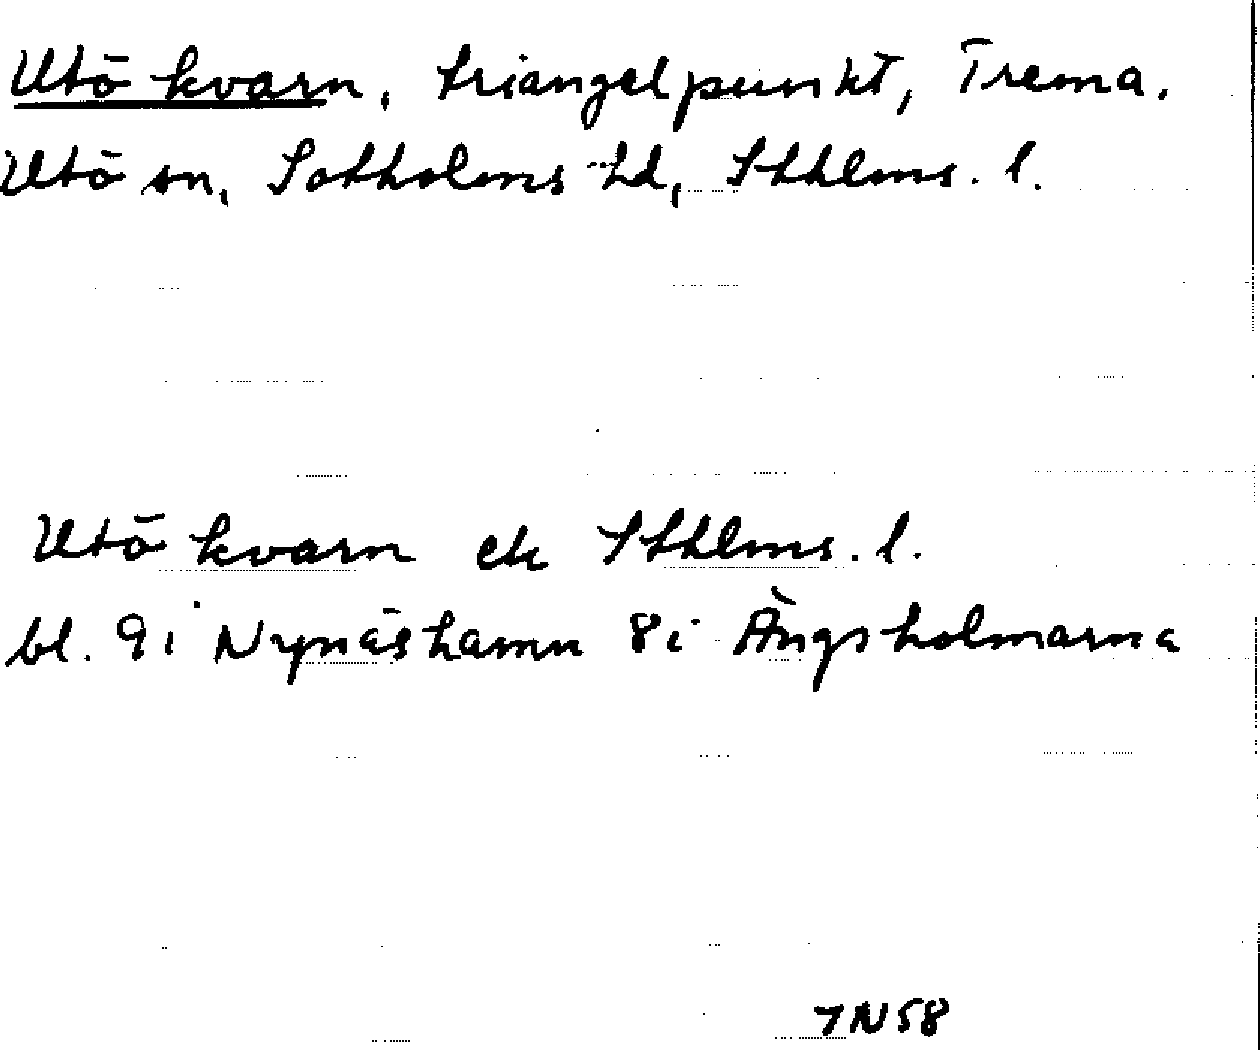 Utö kvarn, triangelpunkt, Trema.
Utö sn, Sotholms hd, Sthlms. l.
Utö kvarn ek Sthlms. l.
bl. 9i Nynäshamn 8i Ängsholmarna
7N58